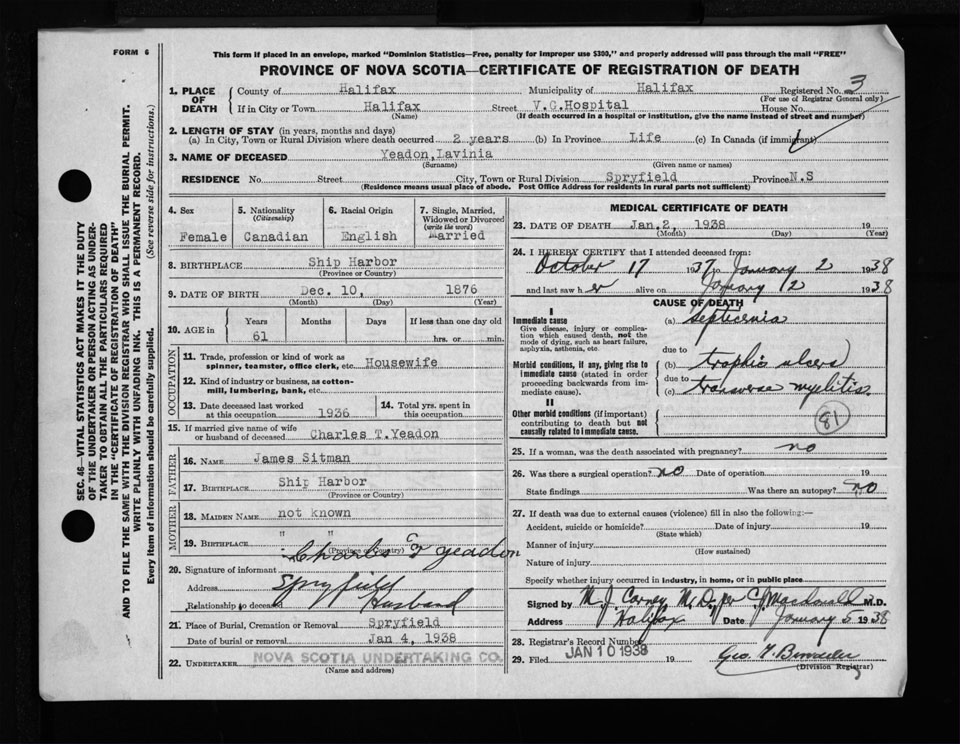 FORM 6
This form if placed in an envelope, marked "Dominion Statistics—Free, penalty for improper use $300," and properly addressed will pass through the mail "FREE"
PROVINCE OF NOVA SCOTIA—CERTIFICATE OF REGISTRATION OF DEATH
1. PLACE OF DEATH
County of Halifax Municipality of Halifax Registered No. 3
(For use of Registrar General only)
If in City or Town Halifax Street V.G.Hospital House No.
(Name) (If death occurred in a hospital or institution, give the name instead of street and number)
2. LENGTH OF STAY (in years, months and days)
(a) In City, Town or Rural Division where death occurred 2 years (b) In Province Life (c) In Canada (if immigrant)
3. NAME OF DECEASED Yeadon, Lavinia
(Surname) (Given name or names)
RESIDENCE No. Street City, Town or Rural Division Spryfield Province N.S
(Residence means usual place of abode. Post Office Address for residents in rural parts not sufficient)
4. Sex
Female
5. Nationality
(Citizenship)
Canadian
6. Racial Origin
English
7. Single, Married, Widowed or Divorced
(write the word)
Married
8. BIRTHPLACE Ship Harbor
(Province or Country)
9. DATE OF BIRTH Dec. 10, 1876
(Month) (Day) (Year)
10. AGE in
Years Months Days If less than one day old
61 hrs. or min.
OCCUPATION
11. Trade, profession or kind of work as spinner, teamster, office clerk, etc. Housewife
12. Kind of industry or business, as cotton-mill, lumbering, bank, etc.
13. Date deceased last worked at this occupation 1936
14. Total yrs. spent in this occupation
15. If married give name of wife or husband of deceased Charles T.Yeadon
FATHER
16. NAME James Sitman
17. BIRTHPLACE Ship Harbor
(Province or Country)
MOTHER
18. MAIDEN NAME not known
19. BIRTHPLACE " "
(Province or Country)
20. Signature of informant Charles T Yeadon
Address Spryfield
Relationship to deceased Husband
21. Place of Burial, Cremation or Removal Spryfield
Date of burial or removal Jan 4, 1938
22. UNDERTAKER NOVA SCOTIA UNDERTAKING CO.
(Name and address)
MEDICAL CERTIFICATE OF DEATH
23. DATE OF DEATH Jan.2, 1938 19
(Month) (Day) (Year)
24. I HEREBY CERTIFY that I attended deceased from:
October 17 1937 to January 2 1938
and last saw h er alive on January 2 1938
CAUSE OF DEATH
I
Immediate cause
Give disease, injury or complication which caused death, not the mode of dying, such as heart failure, asphyxia, asthenia, etc.
(a)
due to
Morbid conditions, if any, giving rise to immediate cause (stated in order proceeding backwards from immediate cause).
(b) trophic ulcers
due to
(c) transverse myelitis
II
Other morbid conditions (if important) contributing to death but not causally related to immediate cause.
81
25. If a woman, was the death associated with pregnancy? no
26. Was there a surgical operation? no Date of operation 19
State findings Was there an autopsy? no
27. If death was due to external causes (violence) fill in also the following:—
Accident, suicide or homicide? Date of injury 19
(State which)
Manner of injury
(How sustained)
Nature of injury
Specify whether injury occurred in industry, in home, or in public place
Signed by M. J. Carney M.D. per C. Macdonald M.D.
Address Halifax Date January 5 1938
28. Registrar's Record Number
29. Filed JAN 10 1938 19
(Division Registrar)
SEC. 46—VITAL STATISTICS ACT MAKES IT THE DUTY
OF THE UNDERTAKER OR PERSON ACTING AS UNDER-
TAKER TO OBTAIN ALL THE PARTICULARS REQUIRED
IN THE "CERTIFICATE OF REGISTRATION OF DEATH"
AND TO FILE THE SAME WITH THE DIVISION REGISTRAR WHO SHALL ISSUE THE BURIAL PERMIT.
WRITE PLAINLY WITH UNFADING INK. THIS IS A PERMANENT RECORD.
Every item of information should be carefully supplied. (See reverse side for instructions.)